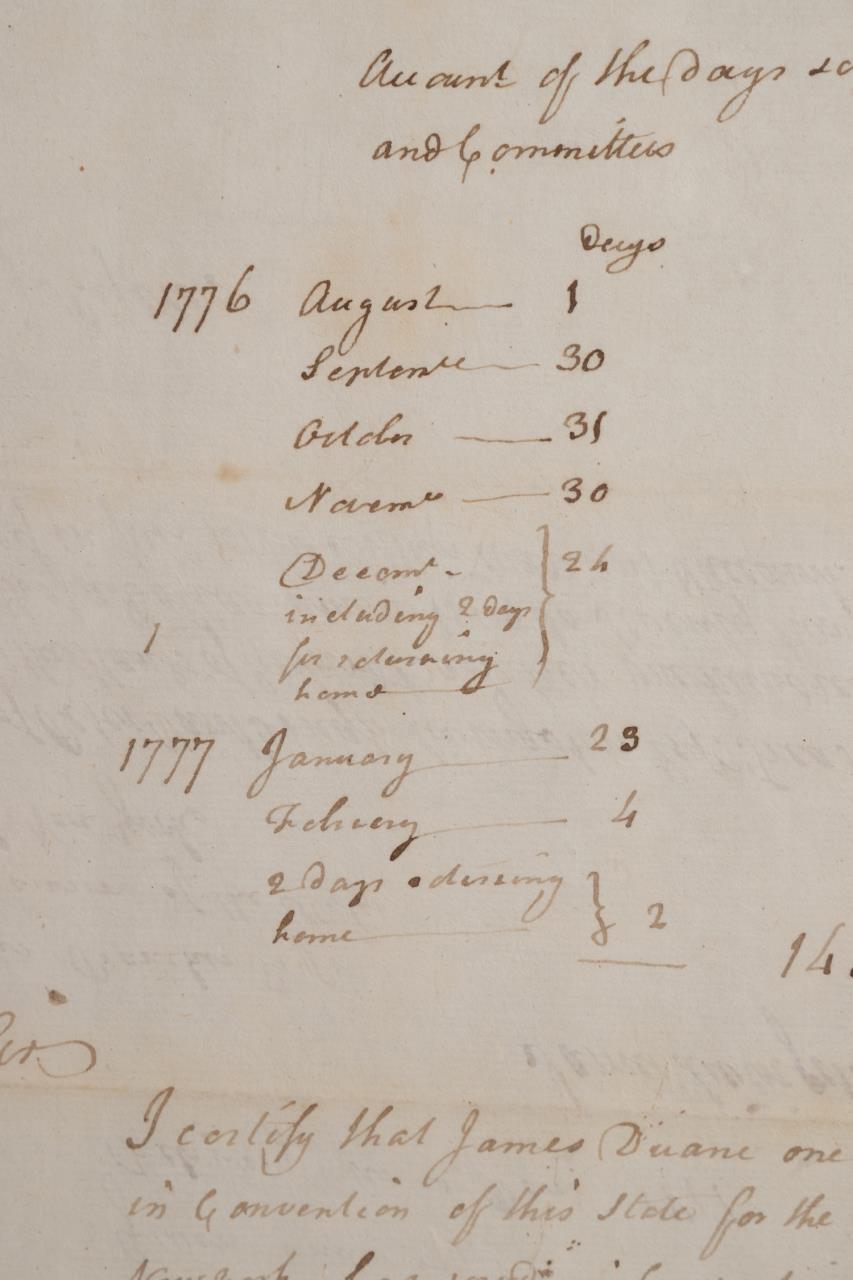 Account of the Days
and Committees
Days
1776 August 1
Septemre 30
October 31
Novemr 30
Decemr 24
including 2 days
for returning
1
home
1777 January 23
February 4
2 Days returning
home 2
14
I certify that James Duane one
in Convention of this State for the